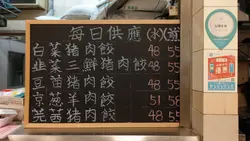 每日供應 (水)(煎)
白菜豬肉餃 48 55
韮菜三鮮豬肉餃 48 55
豆苗豬肉餃 48 55
京葱羊肉餃 51 58
芫茜豬肉餃 48 55